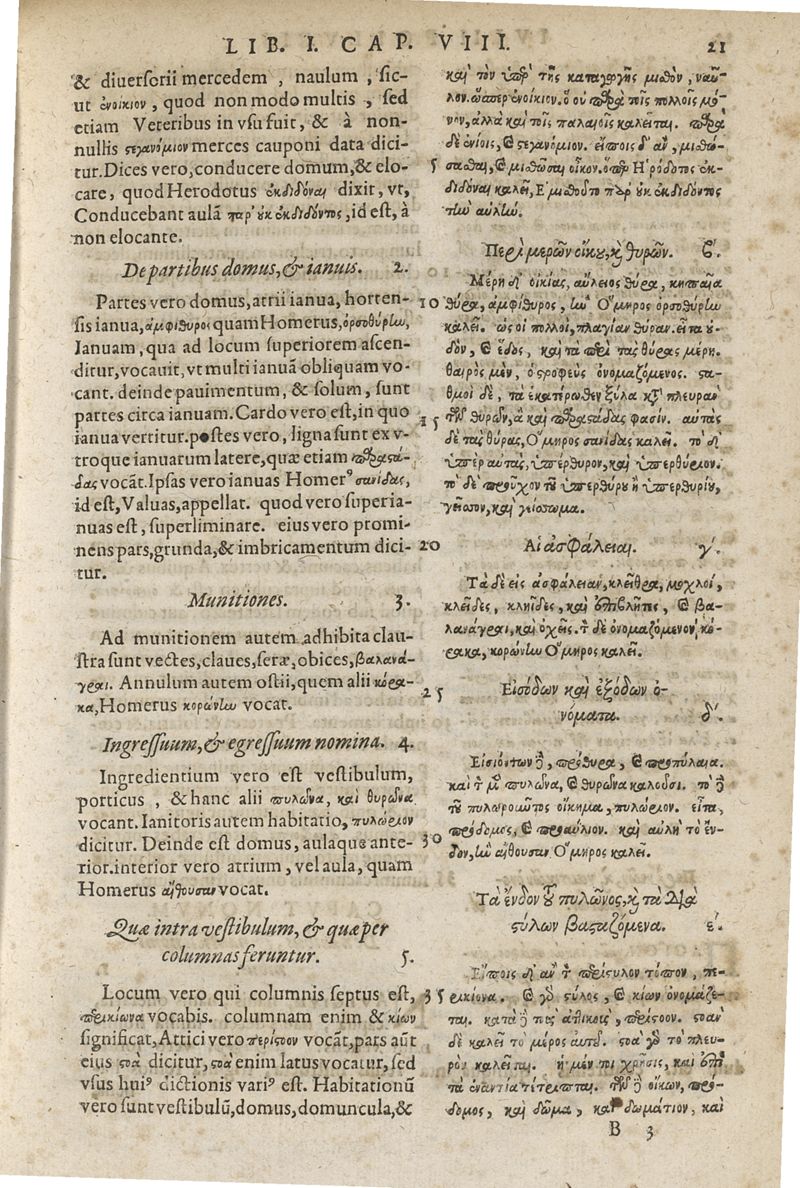 LIB. I. CAP. VIII. 21
& diuersorii mercedem , naulum , sic-
ut ἐνοίκιον, quod non modo multis , sed
etiam Veteribus in vsu fuit, & à non-
nullis ςεγανόμιον merces cauponi data dici-
tur. Dices vero, conducere domum, & elo-
care, quod Herodotus ἐκδιδόναι dixit, vt,
Conducebant aulã παρ' οὐκ ἐκδιδόντος, id est, à
non elocante.
De partibus domus, & ianuis. 2.
Partes vero domus, atrii ianua, horten-
sis ianua, ἀμφίθυροι quam Homerus, ὀρσοθύρην,
Ianuam, qua ad locum superiorem ascen-
ditur, vocauit, vt multi ianuã obliquam vo-
cant. deinde pauimentum, & solum, sunt
partes circa ianuam. Cardo vero est, in quo
ianua vertitur. postes vero, ligna sunt ex v-
troque ianuarum latere, quæ etiam παραςά-
δας vocãt. Ipsas vero ianuas Homerꝰ σανίδας,
id est, Valuas, appellat. quod vero super ia-
nuas est, superliminare. eius vero promi-
nens pars, grunda, & imbricamentum dici-
tur.
Munitiones. 3.
Ad munitionem autem adhibita clau-
stra sunt vectes, claues, seræ, obices, βαλανά-
γραι. Annulum autem ostii, quem alii κόρα-
κα, Homerus κορώνην vocat.
Ingressuum, & egressuum nomina. 4.
Ingredientium vero est vestibulum,
porticus , & hanc alii πυλῶνα, καὶ θυρῶνα
vocant. Ianitoris autem habitatio, πυλώριον
dicitur. Deinde est domus, aulaque ante-
rior. interior vero atrium, vel aula, quam
Homerus αἴθουσαν vocat.
Quæ intra vestibulum, & quæ per
columnas feruntur. 5.
Locum vero qui columnis septus est,
περικίονα vocabis. columnam enim & κίων
significat, Attici vero περίςοον vocãt, pars aũt
eius ςοὰ dicitur, ςοὰ enim latus vocatur, sed
vsus huiꝰ dictionis variꝰ est. Habitationũ
vero sunt vestibulũ, domus, domuncula, &
καὶ τὸν ὑπὲρ τῆς καταγωγῆς μισθὸν, ναῦ-
λον. ὥσπερ ἐνοίκιον. ὃ οὐ παρὰ τοῖς πολλοῖς μό-
νον, ἀλλὰ καὶ τοῖς παλαιοῖς καλεῖται. παρὰ
δὲ ἐνίοις, καὶ ςεγανόμιον. εἴποις δ' ἂν, μισθώ-
5 σασθαι, καὶ μισθῶσαι οἶκον. ὅπερ Ἡρόδοτος ἐκ-
διδόναι καλεῖ, Ἐμισθοῦτο παρ' οὐκ ἐκδιδόντος
τὴν αὐλήν.
Περὶ μερῶν οἴκου, καὶ θυρῶν. ϐʹ.
Μέρη δ' οἰκίας, αὔλειος θύρα, κηπαία
10 θύρα, ἀμφίθυρος, ἣν Ὅμηρος ὀρσοθύρην
καλεῖ. ὡς οἱ πολλοὶ, πλαγίαν θύραν. εἶτα οὐ-
δὸν, καὶ ἕδος, καὶ τὰ περὶ τὰς θύρας μέρη.
θαιρὸς μὲν, ὁ ςροφεὺς ὀνομαζόμενος. ςα-
θμοὶ δὲ, τὰ ἑκατέρωθεν ξύλα κατὰ πλευρὰν
15 τῶν θυρῶν, ἃ καὶ παραςάδας φασίν. αὐτὰς
δὲ τὰς θύρας, Ὅμηρος σανίδας καλεῖ. τὸ δ'
ὑπὲρ αὐτὰς, ὑπέρθυρον, καὶ ὑπερθύριον.
τὸ δὲ προὖχον τοῦ ὑπερθύρου ἢ ὑπερθυρίου,
γεῖσον, καὶ γείσωμα.
20 Αἱ ἀσφάλειαι. γʹ.
Τὰ δὲ εἰς ἀσφάλειαν, κλεῖθρα, μοχλοὶ,
κλεῖδες, κληῖδες, καὶ ἐπιβλῆτες, καὶ βα-
λανάγραι, καὶ ὀχεῖς. τὸν δὲ ὀνομαζόμενον κό-
ρακα, κορώνην Ὅμηρος καλεῖ.
25 Εἰσόδων καὶ ἐξόδων ὀ-
νόματα. δʹ.
Εἰσιόντων δὲ, πρόθυρα, καὶ προπύλαια.
καὶ τὸν μὲν πυλῶνα, καὶ θυρῶνα καλοῦσι. τὸ δὲ
τοῦ πυλωροῦντος οἴκημα, πυλώριον. εἶτα,
30 πρόδομος, καὶ προαύλιον. καὶ αὐλὴ τὸ ἔν-
δον, ἣν αἴθουσαν Ὅμηρος καλεῖ.
Τὰ ἔνδον τοῦ πυλῶνος, καὶ τὰ διὰ
ςύλων βαςαζόμενα. εʹ.
Εἴποις δ' ἂν τὸν περίςυλον τόπον, πε-
35 ρικίονα. καὶ γὰρ ςύλος, καὶ κίων ὀνομάζε-
ται. κατὰ δὲ τοὺς ἀττικοὺς, περίςοον. ςοὰν
δὲ τὸ μέρος αὐτοῦ. ςοὰ γὰρ τὸ πλευ-
ρὸν καλεῖται. ἡ μέν τοι χρῆσις, καὶ ἐπὶ
τὰ ἐναντία τέτραπται. τῶν δὲ οἴκων, πρό-
δομος, καὶ δῶμα, καὶ δωμάτιον, καὶ
B 3